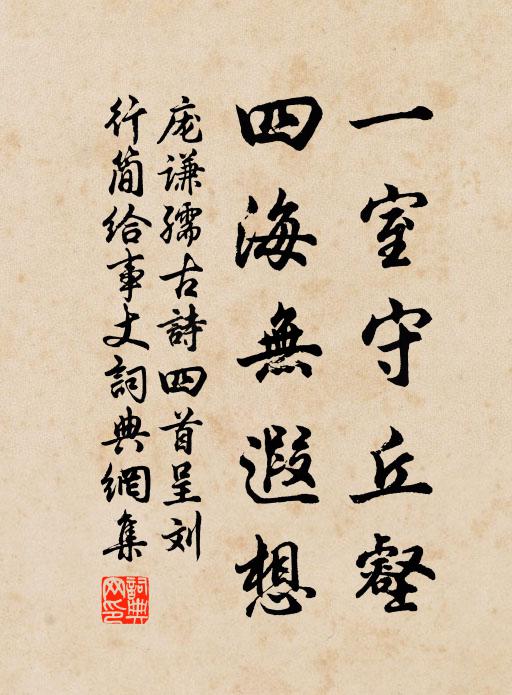 一室守丘壑
四海無遐想
庞谦孺古詩四首呈刘
行簡給事丈詞典網集
詞典
网印